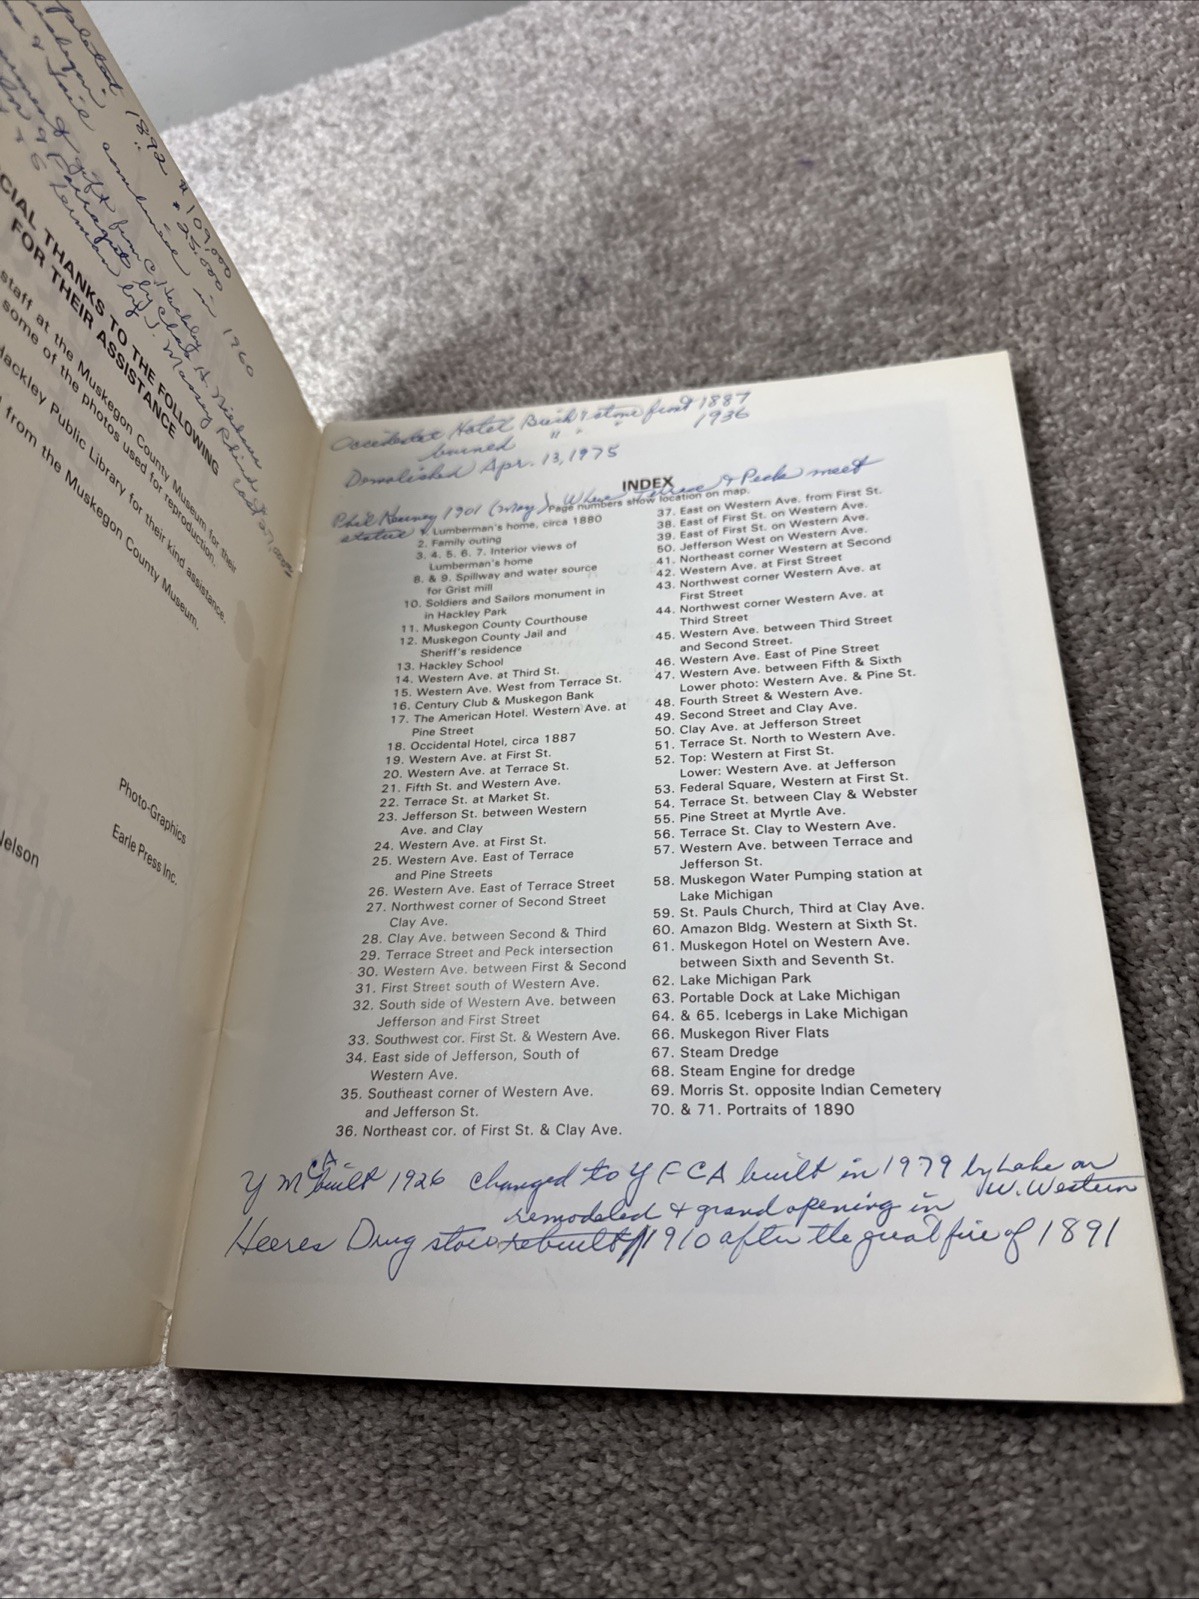 plated 1892 " 109,000
" 25,000
& Jail combined in 1960
gift from C. Hackley
Farragut by Chas. H. Niehaus
Kerman by J. Massey Rhind
Cost 27,000
CIAL THANKS TO THE FOLLOWING
FOR THEIR ASSISTANCE
staff at the Muskegon County Museum for their
some of the photos used for reproduction.
Hackley Public Library for their kind assistance.
from the Muskegon County Museum.
Photo-Graphics
Nelson
Earle Press Inc.
Occidental Hotel Brick & stone front 1887
burned " " " 1936
Domolished Apr. 13, 1975
INDEX
Page numbers show location on map.
Phil Kearney 1901 (May) Where Terrace & Peck meet
statue
1. Lumberman's home, circa 1880
2. Family outing
3. 4. 5. 6. 7. Interior views of
Lumberman's home
8. & 9. Spillway and water source
for Grist mill
10. Soldiers and Sailors monument in
in Hackley Park
11. Muskegon County Courthouse
12. Muskegon County Jail and
Sheriff's residence
13. Hackley School
14. Western Ave. at Third St.
15. Western Ave. West from Terrace St.
16. Century Club & Muskegon Bank
17. The American Hotel. Western Ave. at
Pine Street
18. Occidental Hotel, circa 1887
19. Western Ave. at First St.
20. Western Ave. at Terrace St.
21. Fifth St. and Western Ave.
22. Terrace St. at Market St.
23. Jefferson St. between Western
Ave. and Clay
24. Western Ave. at First St.
25. Western Ave. East of Terrace
and Pine Streets
26. Western Ave. East of Terrace Street
27. Northwest corner of Second Street
Clay Ave.
28. Clay Ave. between Second & Third
29. Terrace Street and Peck intersection
30. Western Ave. between First & Second
31. First Street south of Western Ave.
32. South side of Western Ave. between
Jefferson and First Street
33. Southwest cor. First St. & Western Ave.
34. East side of Jefferson, South of
Western Ave.
35. Southeast corner of Western Ave.
and Jefferson St.
36. Northeast cor. of First St. & Clay Ave.
37. East on Western Ave. from First St.
38. East of First St. on Western Ave.
39. East of First St. on Western Ave.
50. Jefferson West on Western Ave.
41. Northeast corner Western at Second
42. Western Ave. at First Street
43. Northwest corner Western Ave. at
First Street
44. Northwest corner Western Ave. at
Third Street
45. Western Ave. between Third Street
and Second Street.
46. Western Ave. East of Pine Street
47. Western Ave. between Fifth & Sixth
Lower photo: Western Ave. & Pine St.
48. Fourth Street & Western Ave.
49. Second Street and Clay Ave.
50. Clay Ave. at Jefferson Street
51. Terrace St. North to Western Ave.
52. Top: Western at First St.
Lower: Western Ave. at Jefferson
53. Federal Square, Western at First St.
54. Terrace St. between Clay & Webster
55. Pine Street at Myrtle Ave.
56. Terrace St. Clay to Western Ave.
57. Western Ave. between Terrace and
Jefferson St.
58. Muskegon Water Pumping station at
Lake Michigan
59. St. Pauls Church, Third at Clay Ave.
60. Amazon Bldg. Western at Sixth St.
61. Muskegon Hotel on Western Ave.
between Sixth and Seventh St.
62. Lake Michigan Park
63. Portable Dock at Lake Michigan
64. & 65. Icebergs in Lake Michigan
66. Muskegon River Flats
67. Steam Dredge
68. Steam Engine for dredge
69. Morris St. opposite Indian Cemetery
70. & 71. Portraits of 1890
Y M CA built 1926 changed to Y F C A built in 1979 by Lake on
W. Western
remodeled & grand opening in
Heeres Drug store rebuilt 1910 after the great fire of 1891